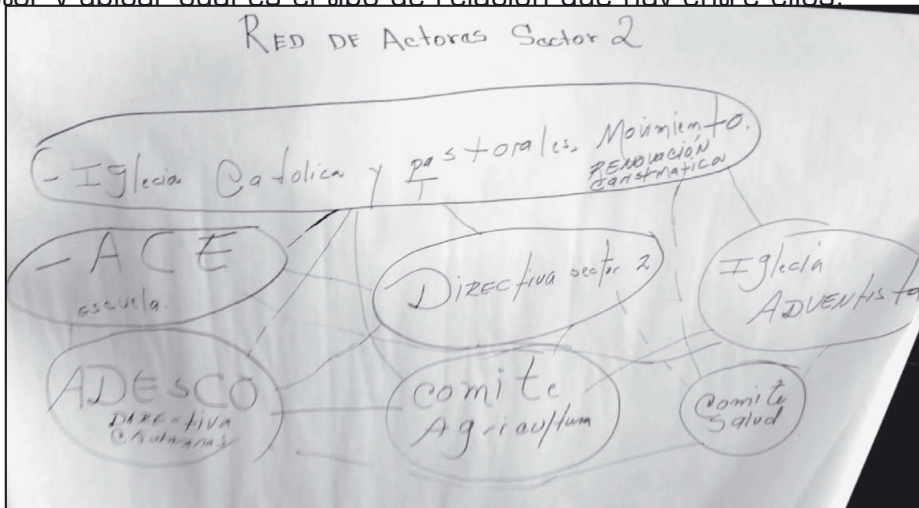 RED DE Actores Sector 2
- Iglecia Catolica y pastorales. Movimiento.
RENOVACIÓN
- ACE
escuela.
Directiva sector 2
Iglecia
ADVENTista
ADESCO
comite
Agricultura
comite
salud